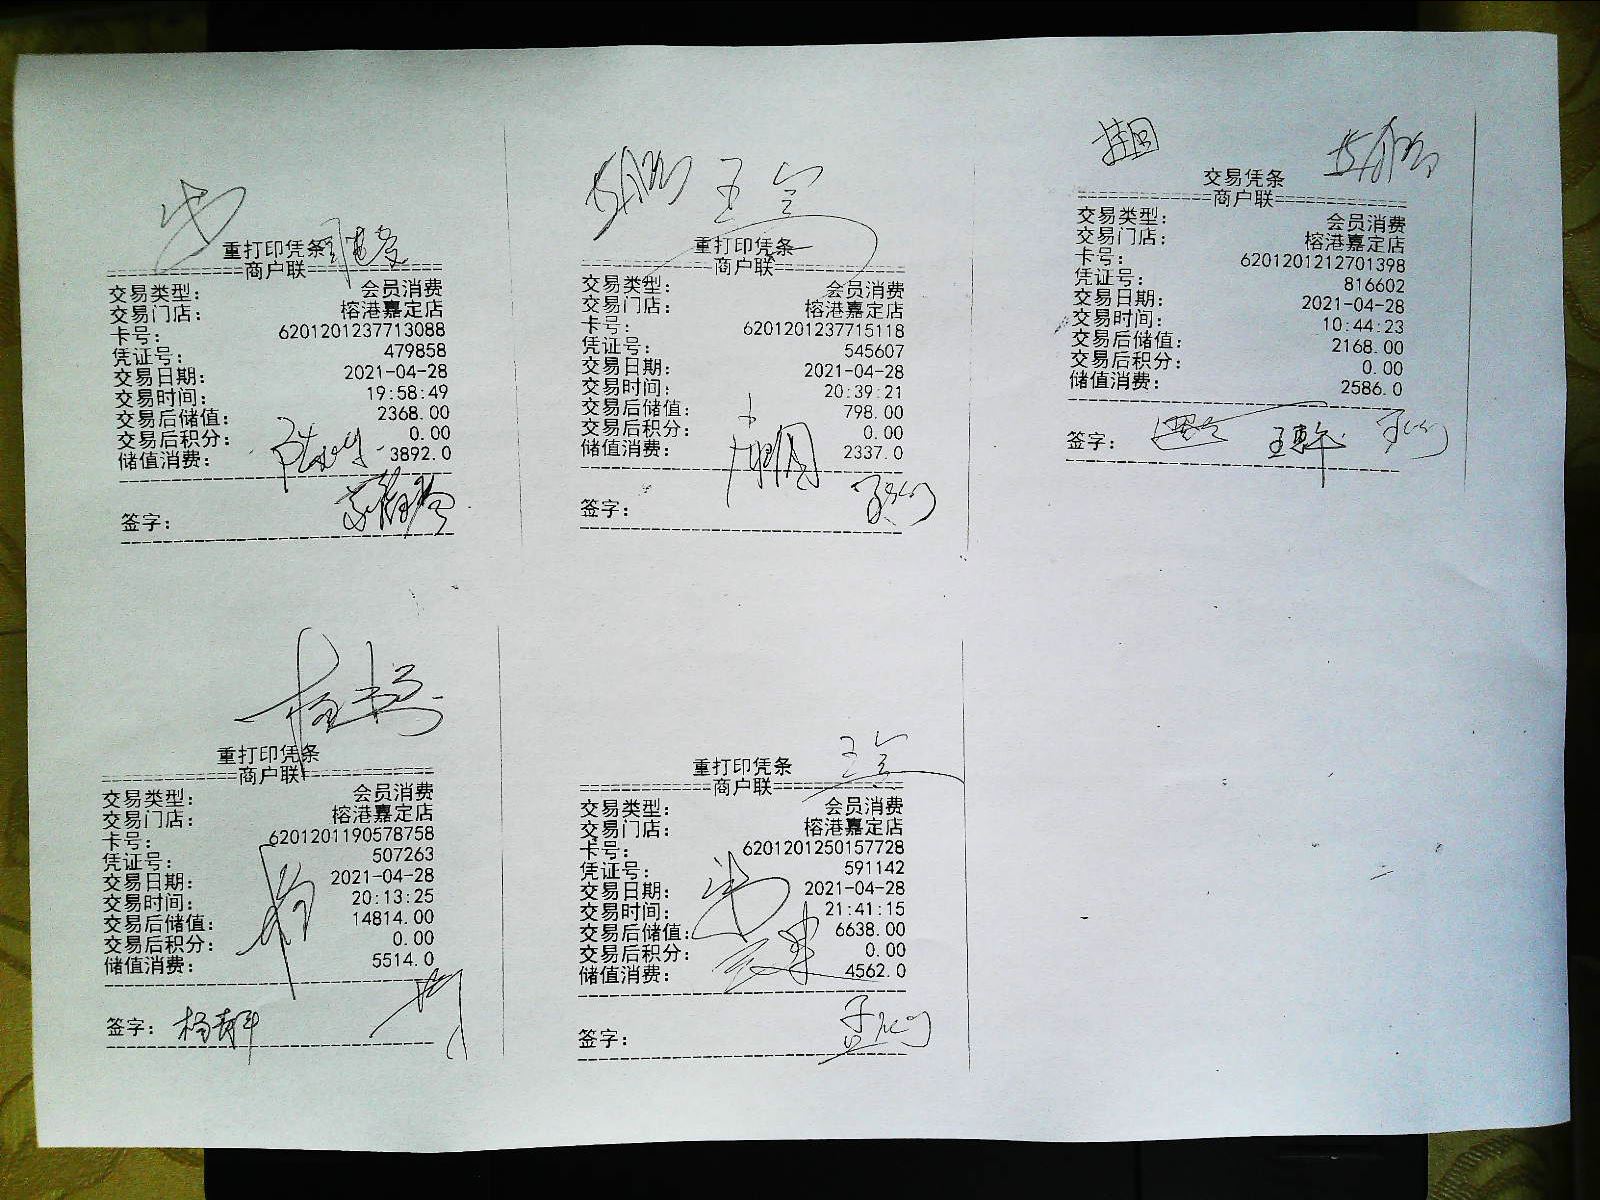 重打印凭条
================商户联================
交易类型： 会员消费
交易门店： 榕港嘉定店
卡号： 6201201237713088
凭证号： 479858
交易日期： 2021-04-28
交易时间： 19:58:49
交易后储值： 2368.00
交易后积分： 0.00
储值消费： 3892.0
签字：
重打印凭条
================商户联================
交易类型： 会员消费
交易门店： 榕港嘉定店
卡号： 6201201237715118
凭证号： 545607
交易日期： 2021-04-28
交易时间： 20:39:21
交易后储值： 798.00
交易后积分： 0.00
储值消费： 2337.0
签字：
交易凭条
================商户联================
交易类型： 会员消费
交易门店： 榕港嘉定店
卡号： 6201201212701398
凭证号： 816602
交易日期： 2021-04-28
交易时间： 10:44:23
交易后储值： 2168.00
交易后积分： 0.00
储值消费： 2586.0
签字：
重打印凭条
================商户联================
交易类型： 会员消费
交易门店： 榕港嘉定店
卡号： 6201201190578758
凭证号： 507263
交易日期： 2021-04-28
交易时间： 20:13:25
交易后储值： 14814.00
交易后积分： 0.00
储值消费： 5514.0
签字： 杨静
重打印凭条
================商户联================
交易类型： 会员消费
交易门店： 榕港嘉定店
卡号： 6201201250157728
凭证号： 591142
交易日期： 2021-04-28
交易时间： 21:41:15
交易后储值： 6638.00
交易后积分： 0.00
储值消费： 4562.0
签字：